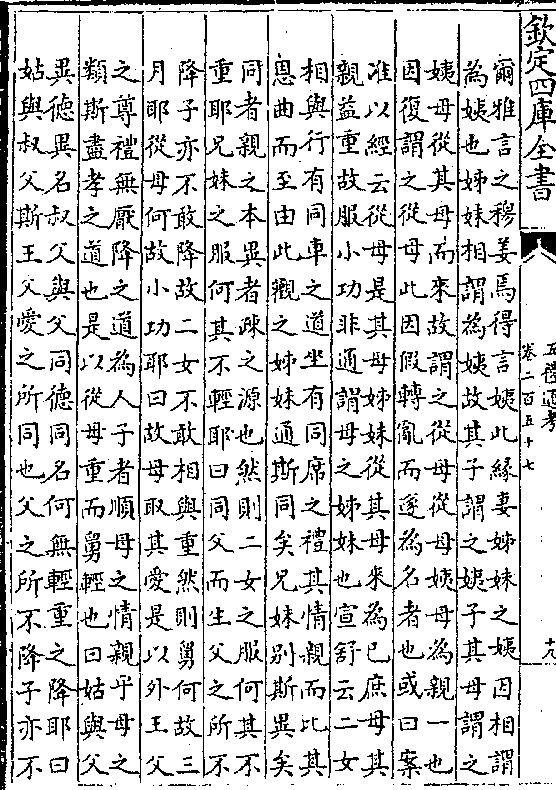 欽定四庫全書
五禮通考
卷二百五十七
十八
爾雅言之穆姜焉得言姨此緣妻姊妹之姨因相謂
為姨也姊妹相謂為姨故其子謂之姨子其母謂之
姨母從其母而來故謂之從母從母姨母為親一也
因復謂之從母此因假轉亂而遂為名者也或曰案
准以經云從母是其母姊妹從其母来為已庶母其
親益重故服小功非通謂母之姊妹也宣舒云二女
相與行有同車之道坐有同席之禮其情親而比其
恩曲而至由此觀之姊妹通斯同矣兄妹别斯異矣
同者親之本異者疎之源也然則二女之服何其不
重耶兄妹之服何其不輕耶曰同父而生父之所不
降子亦不敢降故二女不敢相與重然則舅何故三
月耶從母何故小功耶曰故母取其愛是以外王父
之尊禮無厭降之道為人子者順母之情親乎母之
類斯盡孝之道也是以從母重而舅輕也曰姑與父
異德異名叔父與父同德同名何無輕重之降耶曰
姑與叔父斯王父愛之所同也父之所不降子亦不